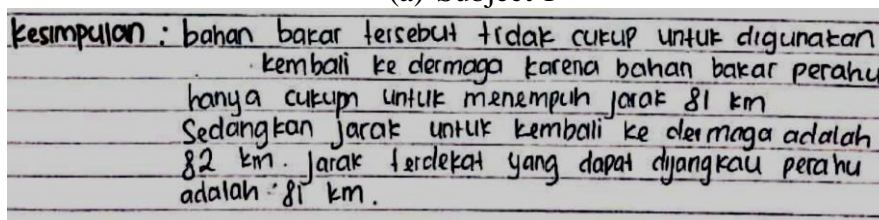 (a) Subject 1
Kesimpulan : bahan bakar tersebut tidak cukup untuk digunakan
kembali ke dermaga karena bahan bakar perahu
hanya cukupn untuk menempuh jarak 81 km
Sedangkan jarak untuk kembali ke dermaga adalah
82 km. jarak terdekat yang dapat dijangkau perahu
adalah : 81 km.